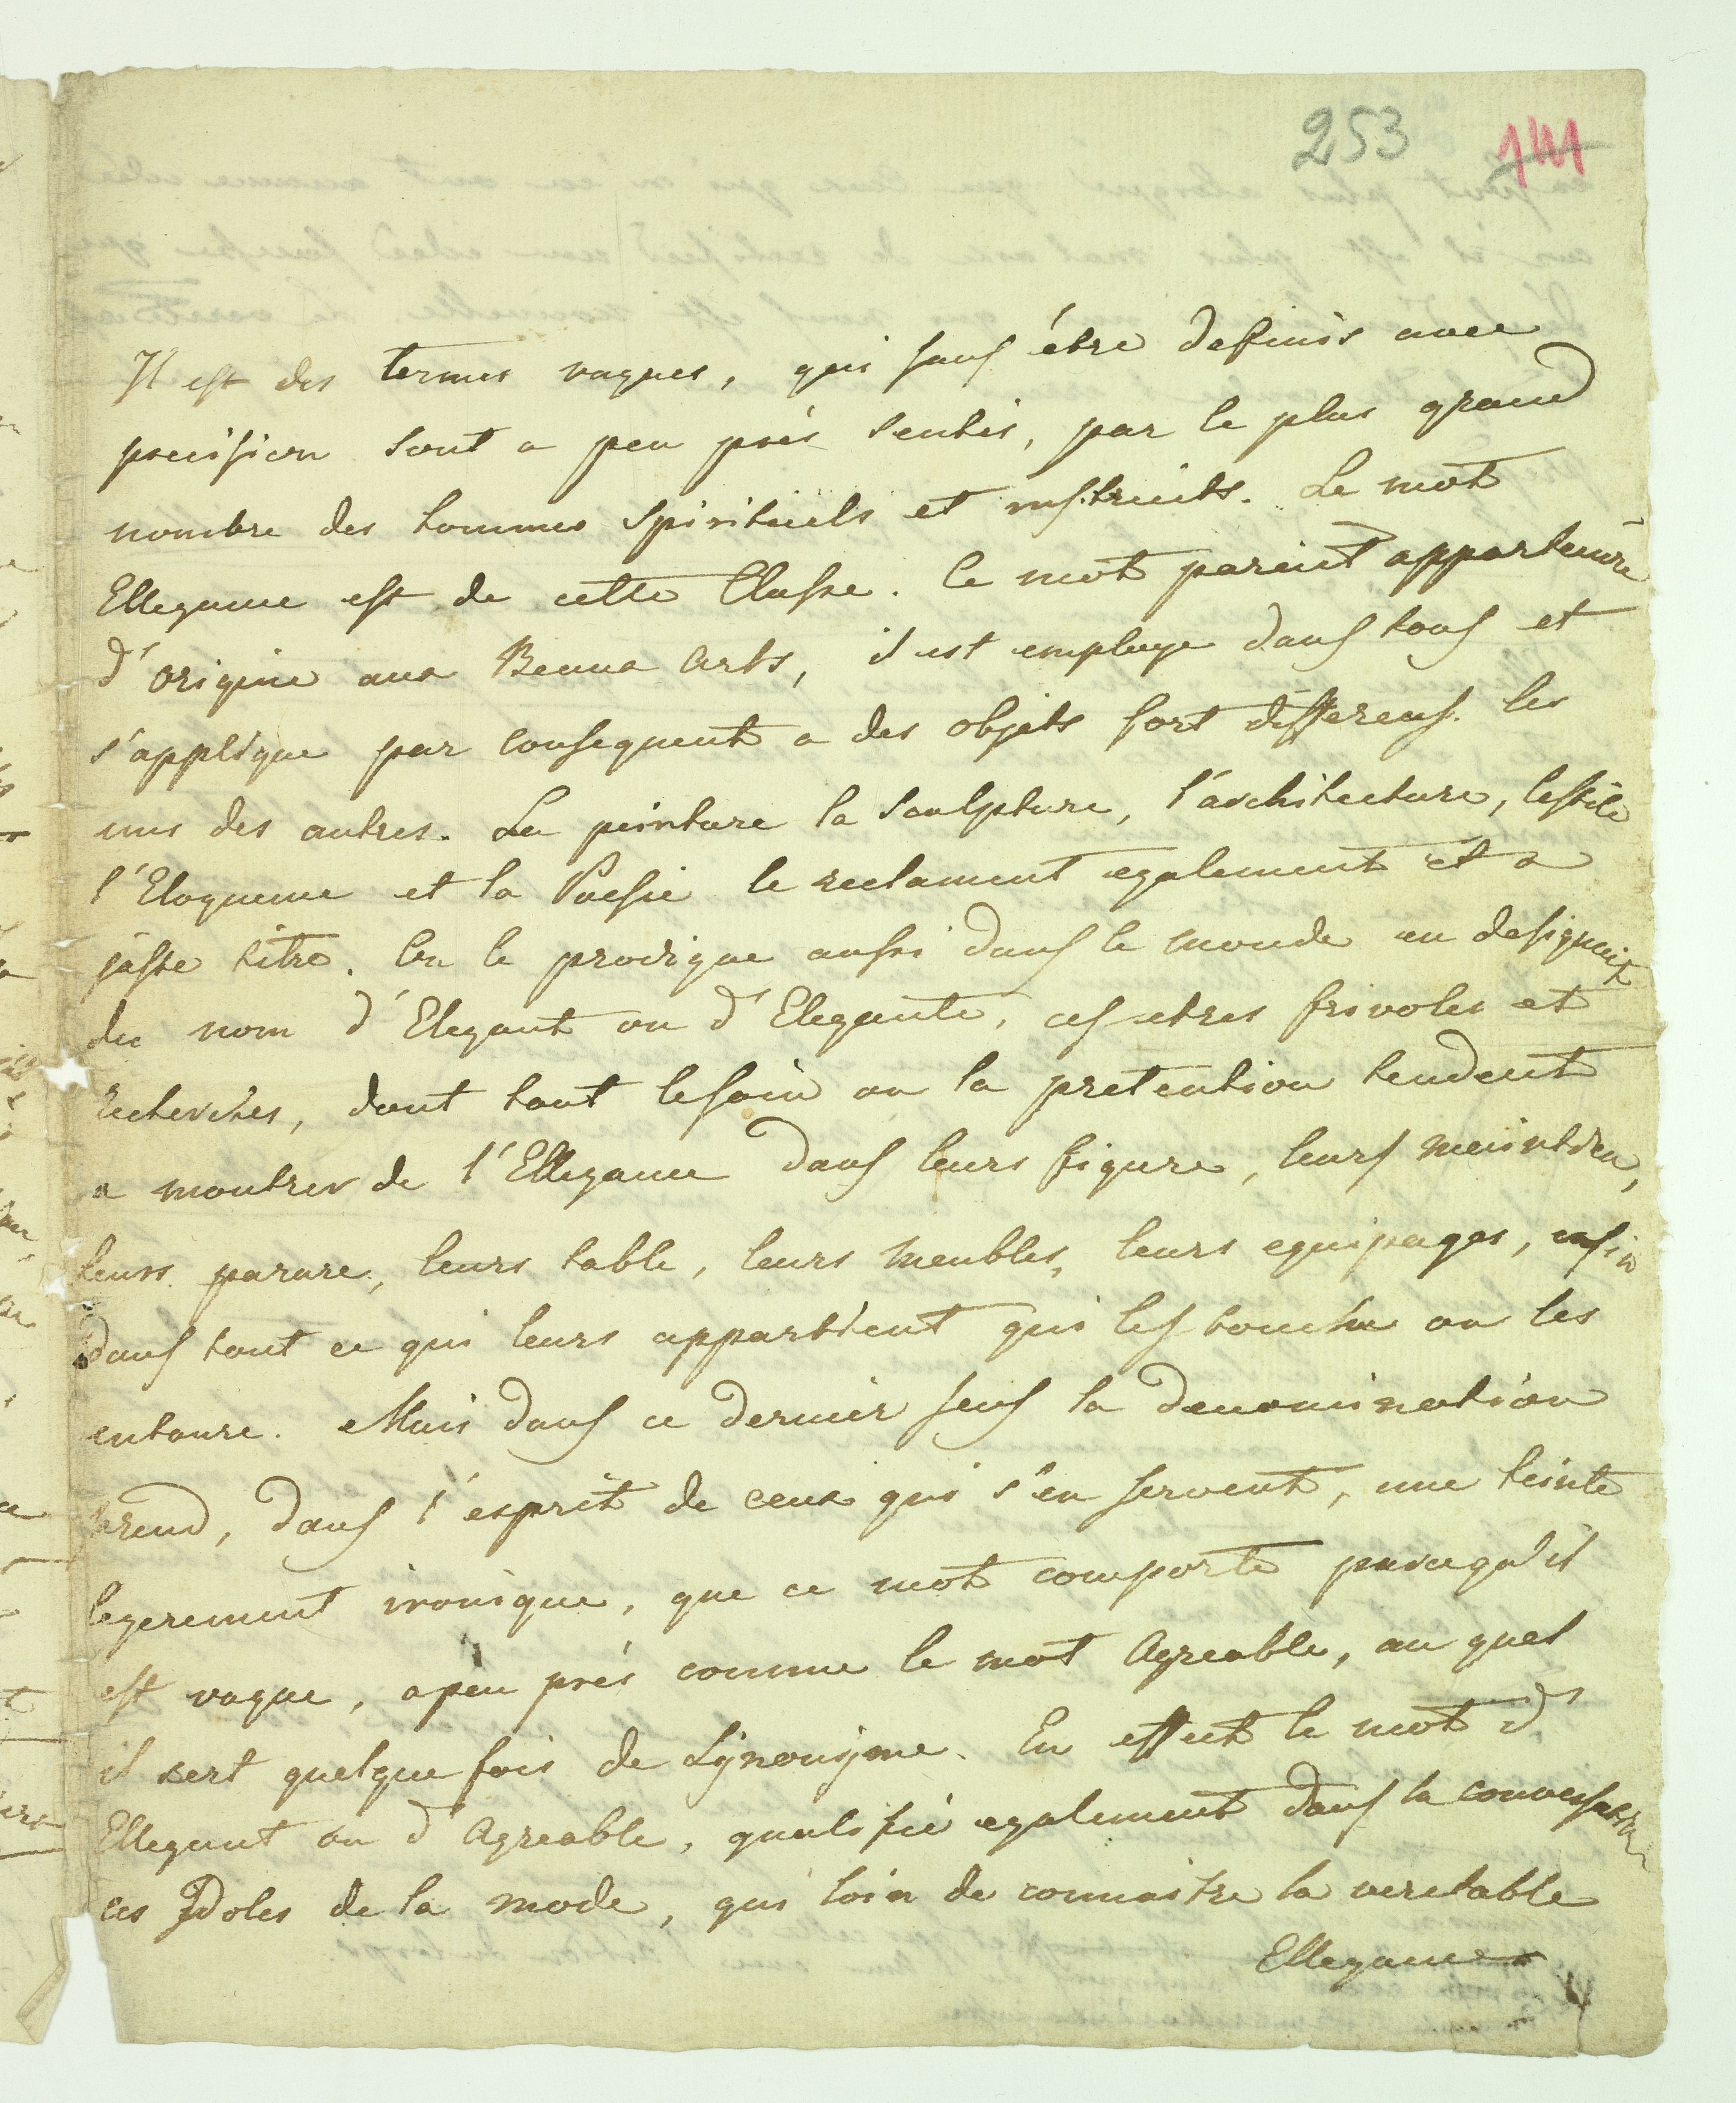 253 141
Il est des termes vagues, qui sans étre definis avec
precision sont a peu prés sentis, par le plus grand
nombre des hommes spirituels et instruits. Le mot
Ellegance est de cette Classe. Ce mot parait appartenire
d'origine aux Beaux Arts, il est employe dans tous et
s'applique par consequent a des objets fort differens les
uns des autres. La peinture la Sculpture, l'architecture, lestile
l'Eloquence et la Poesie le reclament egalement et a
juste titre. On le prodigue aussi dans le monde en designait
du nom d'Elegant ou d'Elegante, ces etres frivoles et
recherches, dont tout lesoin ou la pretention tendent
a montrer de l'Ellegance dans leurs figure, leurs maintien,
leurs parure, leurs table, leurs meubles, leurs equipages, enfin
dans tout ce qui leurs appartient qui les touche ou les
entoure. Mais dans ce dernier sens la denomination
prend, dans l'esprit de ceux qui s'en servent, une teinte
legerement ironique, que ce mot comporte parcequ'il
est vague, apeu prés comme le mot Agreable, au quel
il sert quelque fois de Synonyme. En effect le mot d'
Ellegant ou d'Agreable, qualifie egalement dans la conversation
ces Idoles de la mode, qui loin de connaitre la veritable
Ellegance